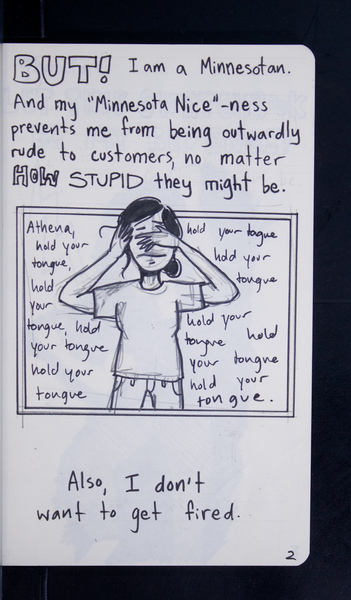 BUT! I am a Minnesotan.
And my "Minnesota Nice"-ness
prevents me from being outwardly
rude to customers, no matter
HOW STUPID they might be.
Athena,
hold your
tongue,
hold
your
tongue, hold
your tongue
hold your
tongue
hold your togue
hold your
tongue
hold your
tongue hold
your tongue
hold your
tongue.
Also, I don't
want to get fired.
2